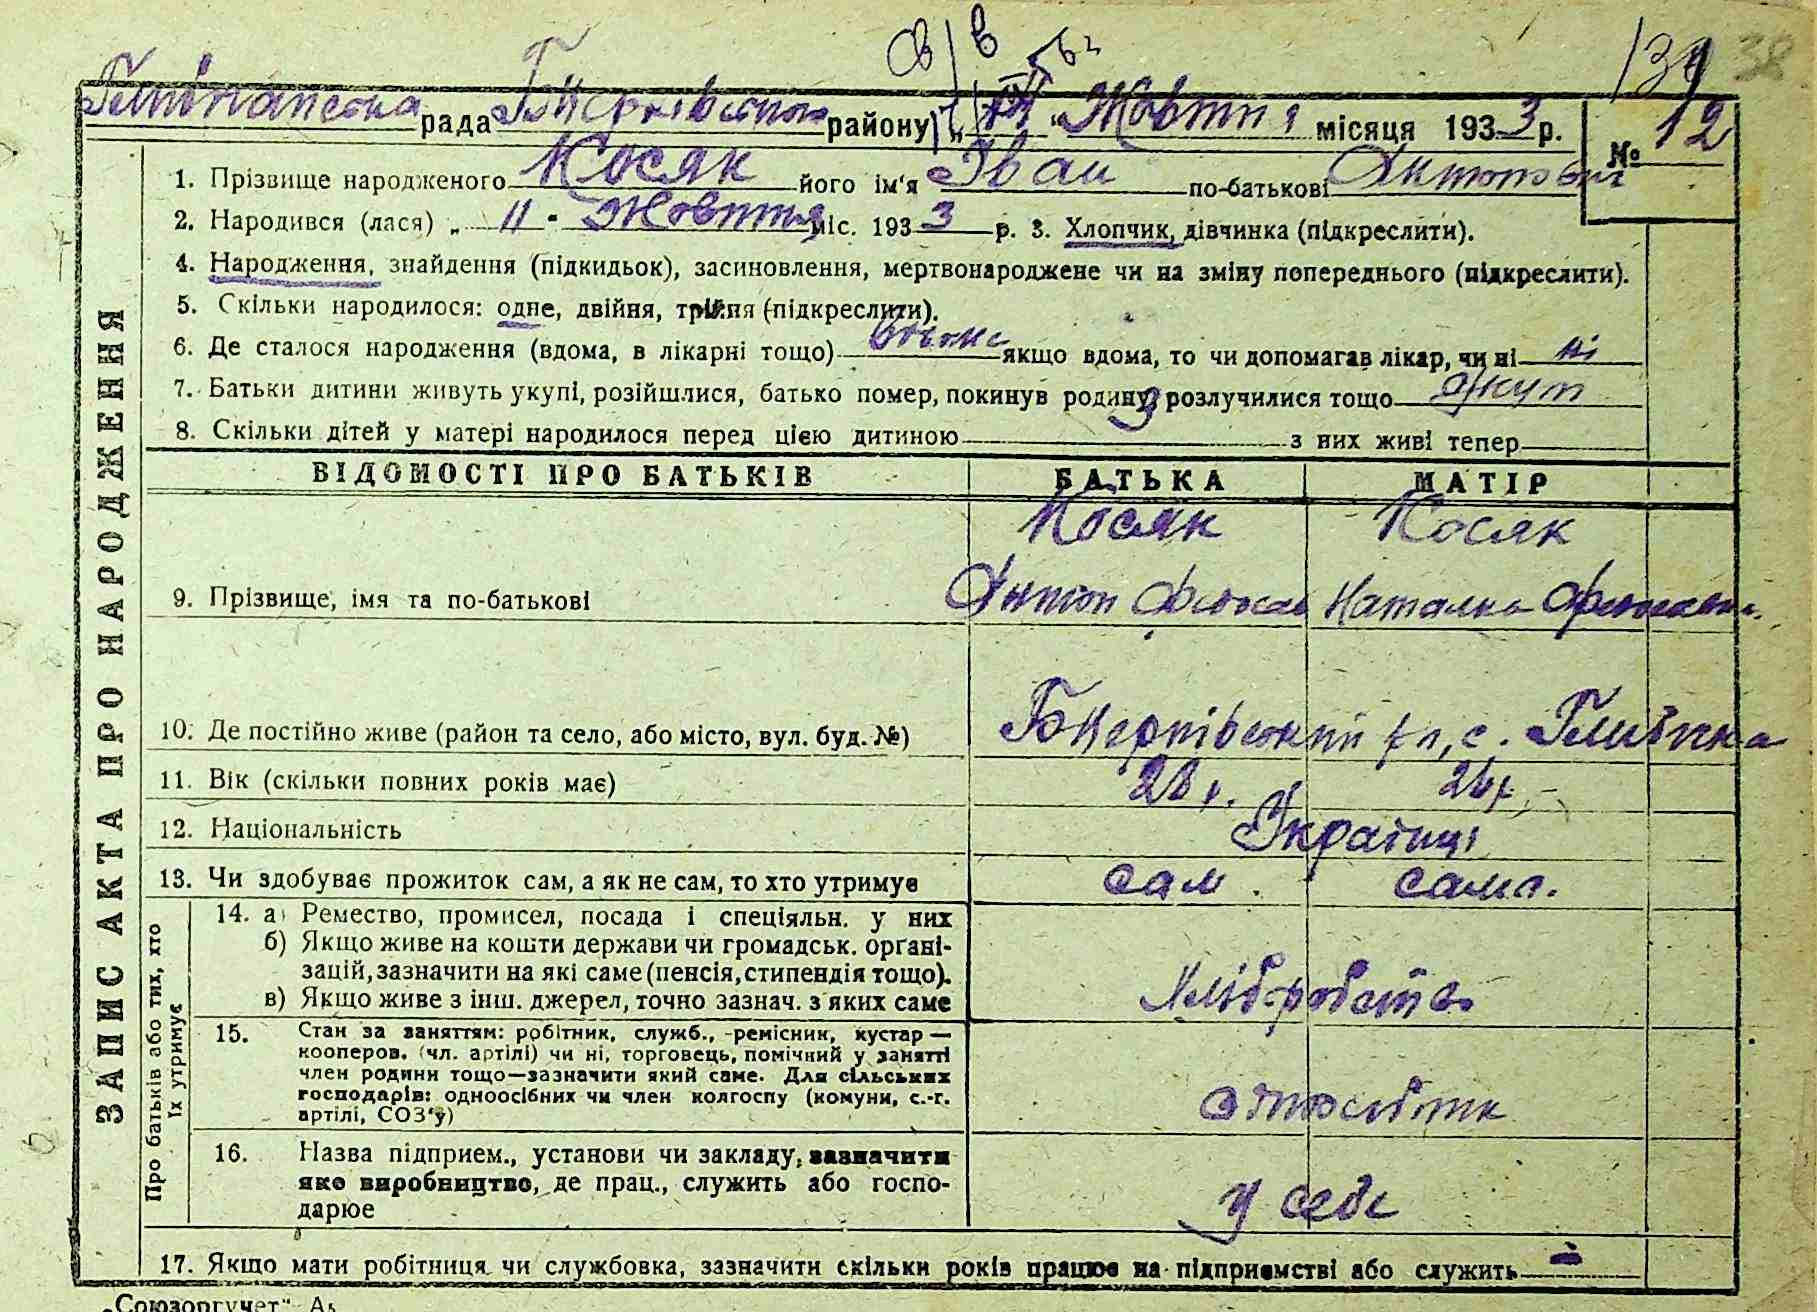 139 38
рада району Жовтня місяця 1933 р. № 12
1. Прізвище народженого Косяк його ім'я Іван по-батькові Антонович
2. Народився (лася) „ 11 " Жовтня міс. 1933 р. 3. Хлопчик, дівчинка (підкреслити).
4. Народження, знайдення (підкидьок), засиновлення, мертвонароджене чи на зміну попереднього (підкреслити).
5. Скільки народилося: одне, двійня, трійня (підкреслити).
6. Де сталося народження (вдома, в лікарні тощо) вдома якщо вдома, то чи допомагав лікар, чи ні ні
7. Батьки дитини живуть укупі, розійшлися, батько помер, покинув родину, розлучилися тощо
8. Скільки дітей у матері народилося перед цією дитиною 3 з них живі тепер
ВІДОМОСТІ ПРО БАТЬКІВ БАТЬКА МАТІР
Косяк Косяк
9. Прізвище, імя та по-батькові Антон Наталка
10. Де постійно живе (район та село, або місто, вул. буд. №) с.
11. Вік (скільки повних років має) 28 р.
12. Національність Українці
13. Чи здобуває прожиток сам, а як не сам, то хто утримує сам. сама.
14. а) Ремество, промисел, посада і спеціяльн. у них
б) Якщо живе на кошти держави чи громадськ. органі-
зацій, зазначити на які саме (пенсія, стипендія тощо).
в) Якщо живе з інш. джерел, точно зазнач. з яких саме Хліборобство
15. Стан за заняттям: робітник, служб., ремісник, кустар —
кооперов. (чл. артілі) чи ні, торговець, помічний у занятті
член родини тощо—зазначити який саме. Для сільських
господарів: одноосібних чи член колгоспу (комуни, с.-г.
артілі, СОЗ'у)
16. Назва підприєм., установи чи закладу, зазначити
яке виробництво, де прац., служить або госпо-
дарює у себе
17. Якщо мати робітниця чи службовка, зазначити скільки років працює на підприємстві або служить -
ЗАПИС АКТА ПРО НАРОДЖЕННЯ
Про батьків або тих, хто
їх утримує
„Союзоргучет"